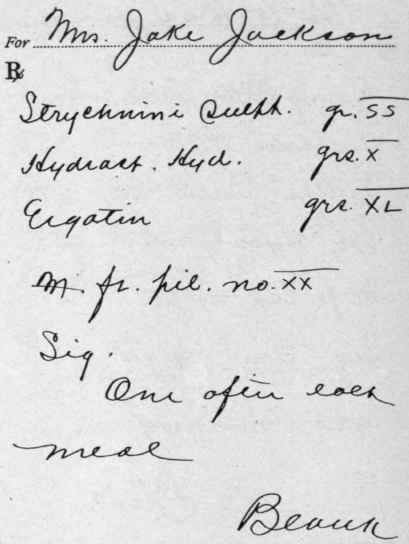 For Mrs. Jake Jackson
℞
Strychnini Sulph. gr. SS
Hydrast. Hyd. grs. X
Ergotin grs. XL
M. ft. pil. no. XX
Sig.
One after each
meal